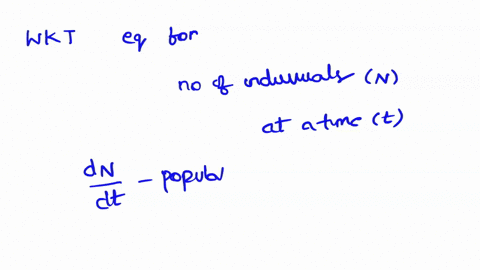 WKT eq for
no of individuals (N)
at a time (t)
dN/dt - popular